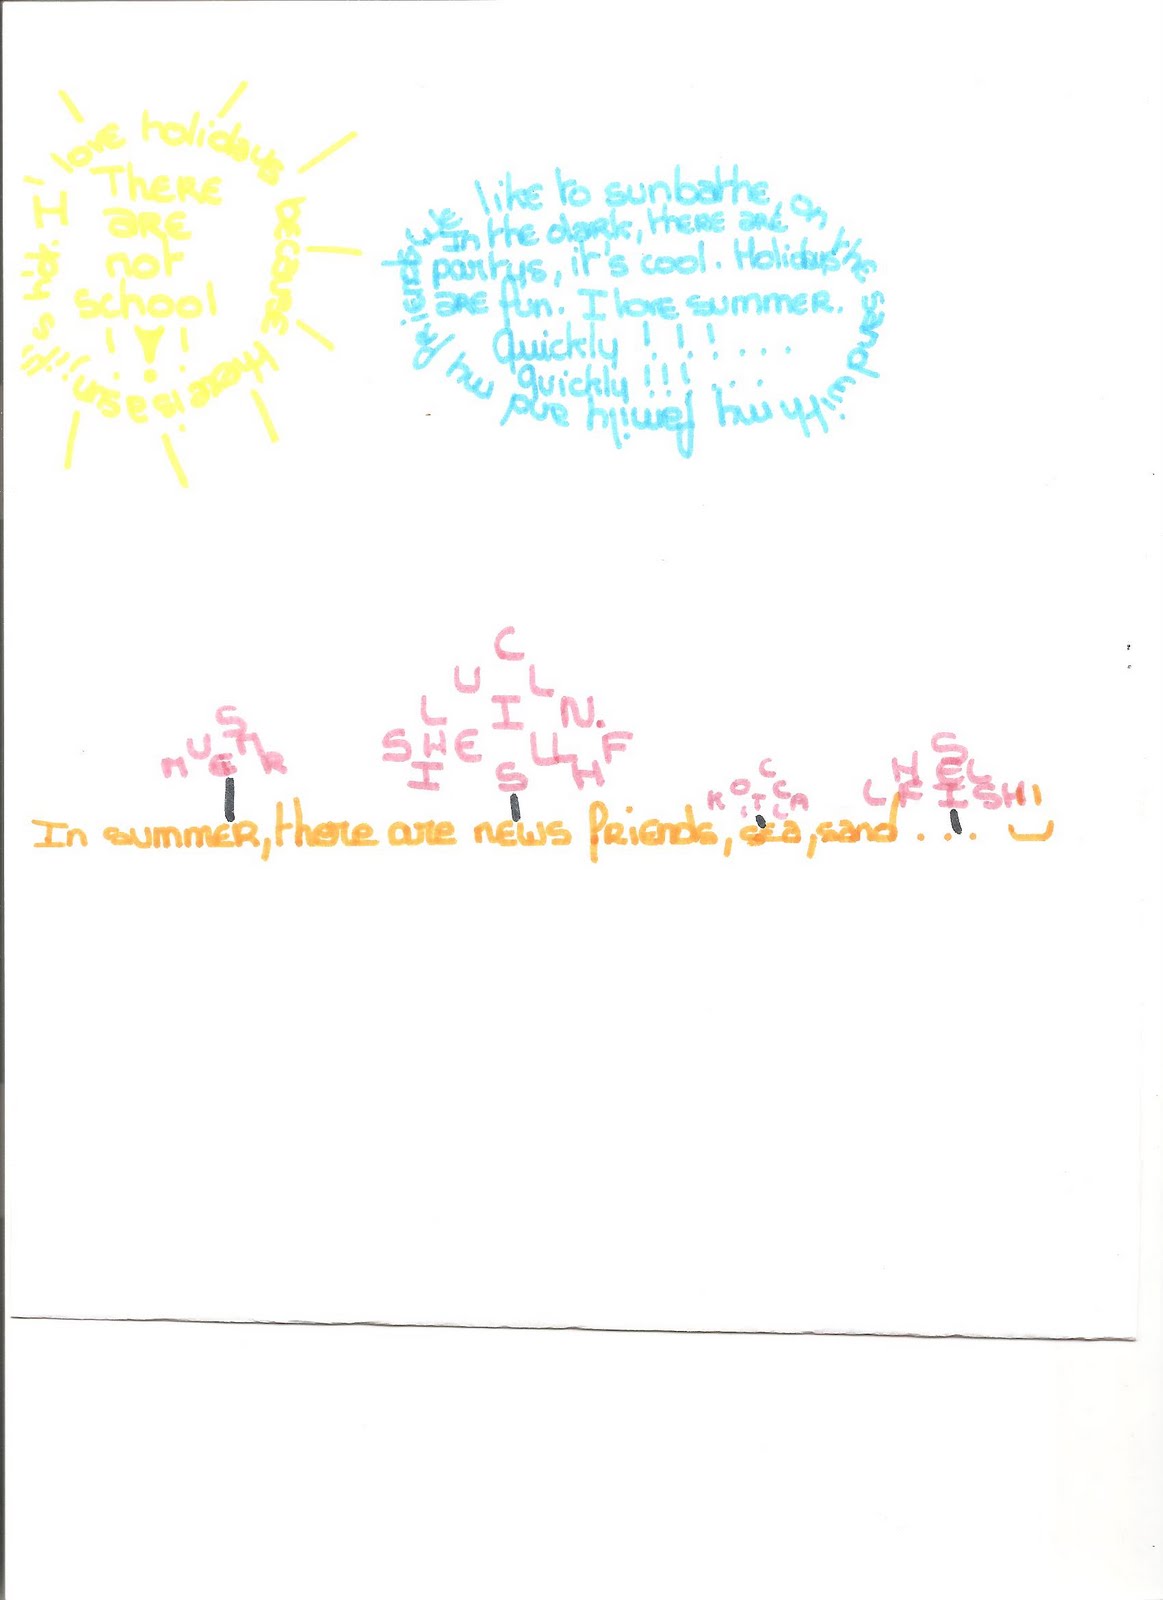 I love holidays because there is a sun !!! it's hot.
THERE
ARE
not
school
! ! !
we like to sunbathe, on the sand with my family and my friends
In the dark, there are
partys, it's cool. Holidays
are fun. I love summer.
Quickly ! ! ! . . . .
quickly !!! . . .
In summer, there are news friends, sea, sand . . .